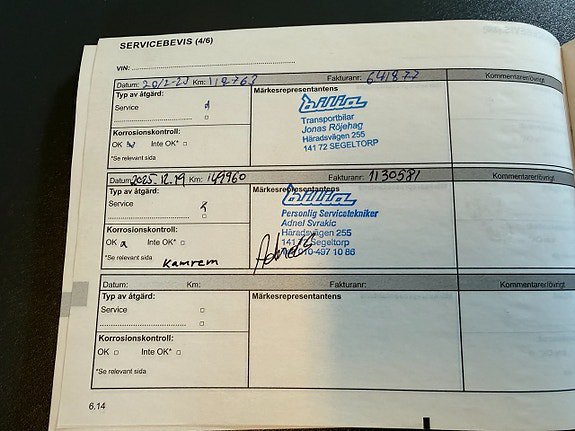 SERVICEBEVIS (4/6)
VIN:
Datum: 20/2-25 Km: 112763 Fakturanr: 641877 Kommentarer/övrigt
Typ av åtgärd: Märkesrepresentantens
Service
bilia
Transportbilar
Jonas Röjehag
Häradsvägen 255
141 72 SEGELTORP
Korrosionskontroll:
OK Inte OK*
*Se relevant sida
Datum: 2025.12.19 Km: 149960 Fakturanr: 1130581 Kommentarer/övrigt
Typ av åtgärd: Märkesrepresentantens
Service
bilia
Personlig Servicetekniker
Adnel Svrakic
Häradsvägen 255
Segeltorp
010-497 10 86
Korrosionskontroll:
OK Inte OK*
*Se relevant sida
Kamrem
Datum: Km: Fakturanr: Kommentarer/övrigt
Typ av åtgärd: Märkesrepresentantens
Service
Korrosionskontroll:
OK Inte OK*
*Se relevant sida
6.14